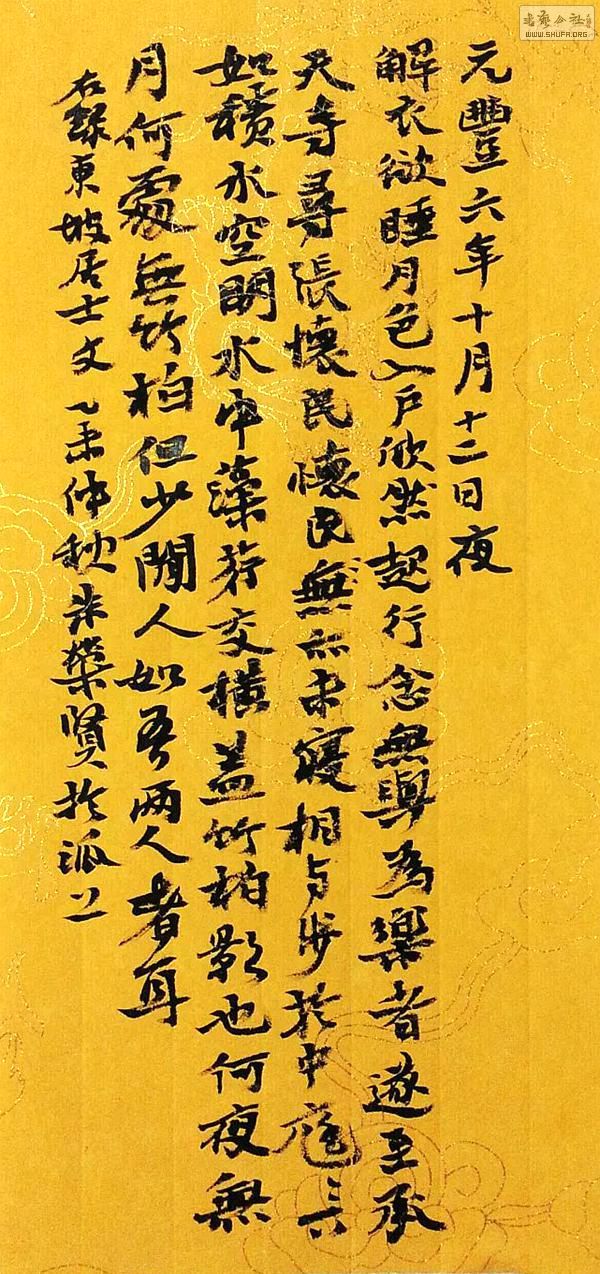 元豐六年十月十二日夜
解衣欲睡月色入戶欣然起行念無與為樂者遂至承
天寺尋張懷民懷民無亦未寢相与步於中庭
如積水空明水中藻荇交橫蓋竹柏影也何夜無
月何處無竹柏但少閒人如吾兩人者耳
右錄東坡居士文乙未仲秋朱賢於上
書藝公社
WWW.SHUFA.ORG